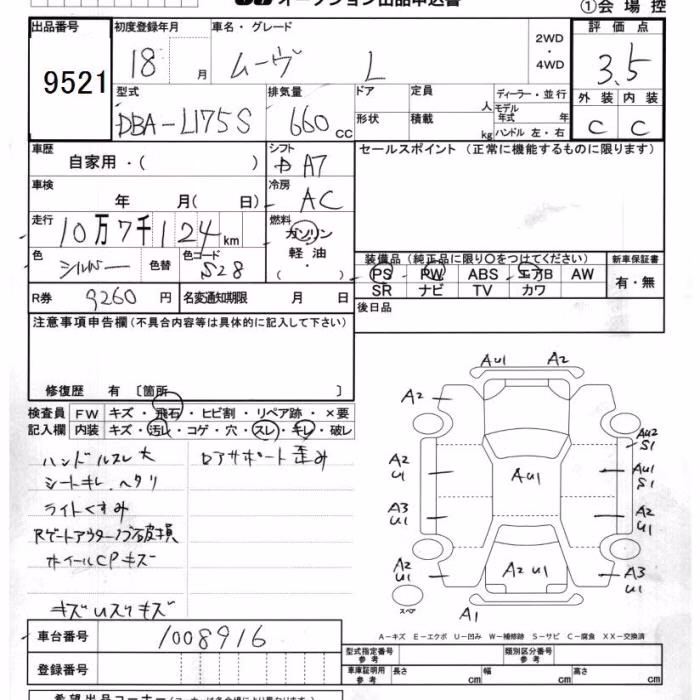 オークション出品申込書
①会場控
出品番号 初度登録年月 車名・グレード 評価点
9521 18 月 ムーヴ L 2WD・4WD 3.5
型式 排気量 ドア 定員 人 ディーラー・並行 外装 内装
DBA-L175S 660cc 形状 積載 kg モデル年式 年 ハンドル 左・右 C C
車歴 シフト セールスポイント (正常に機能するものに限ります)
自家用・( ) A7
車検 冷房
年 月( 日) AC
走行 燃料
10万7千124km ガソリン
軽油
( ・ )
色 色替 色コード 装備品 (純正品に限り○をつけてください) 新車保証書
シルバー S28 PS PW ABS エアB AW 有・無
SR ナビ TV カワ
R券 9260円 名変通知期限 月 日 後日品
注意事項申告欄(不具合内容等は具体的に記入して下さい)
修復歴 有 〔箇所 〕
検査員 FW キズ・飛石・ヒビ割・リペア跡・×要
記入欄 内装 キズ・汚レ・コゲ・穴・スレ・キレ・破レ
ハンドルスレ大 ロアサポート歪み
シートキレ、ヘタリ
ライトくすみ
Rゲートアウターノブ破損
ホイールCPキズ
キズUスリキズ
車台番号 1008916
登録番号
希望出品コーナー
AU1 A2
A2
AU2
S1
A2
U1
AU1
AU1
S1
A3
U1
A2
U1
A2
U1
A2 U1
A3
U1
スペア
A1
A-キズ E-エクボ U-凹み W-補修跡 S-サビ C-腐食 XX-交換済
型式指定番号 参考 類別区分番号 参考
車庫証明用 参考 長さ cm 幅 cm 高さ cm